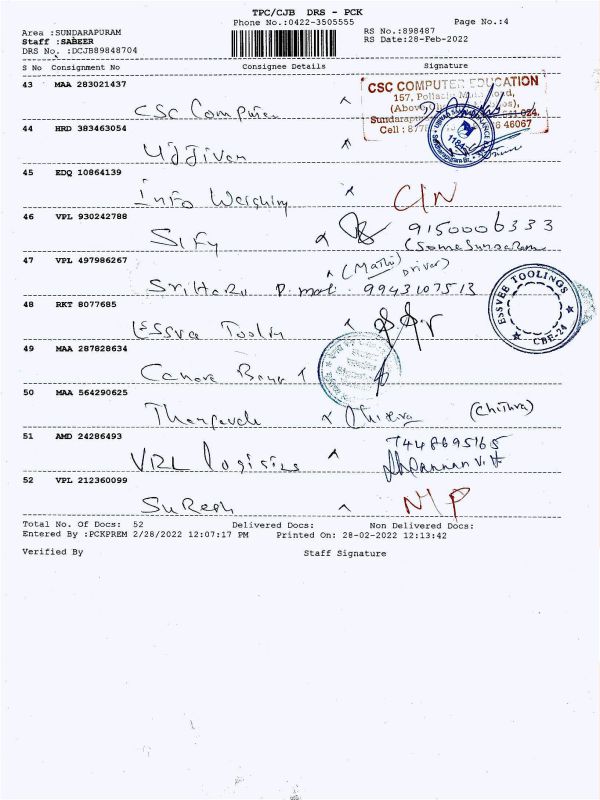 TPC/CJB DRS - PCK
Phone No.:0422-3505555
Page No.:4
Area :SUNDARAPURAM
Staff :SABEER
DRS No. :DCJB89848704
RS No.:898487
RS Date:28-Feb-2022
S No Consignment No Consignee Details Signature
43 MAA 283021437
CSC Computer
CSC COMPUTER EDUCATION
157, Pollachi Main Road,
(Above
Cell : 877 46067
44 HRD 383463054
Ujjivan
45 EDQ 10864139
Info CIN
46 VPL 930242788
Sify 9150006333
47 VPL 497986267
(Mathi Driver)
9943107513
48 RKT 8077685
Essva
ESSVEE TOOLINGS
CBE-24
49 MAA 287828634
Canara
50 MAA 564290625
(Chithra)
51 AMD 24286493
VRL logistics 7448695165
52 VPL 212360099
Suresh NIP
Total No. Of Docs: 52 Delivered Docs: Non Delivered Docs:
Entered By :PCKPREM 2/28/2022 12:07:17 PM Printed On: 28-02-2022 12:13:42
Verified By Staff Signature